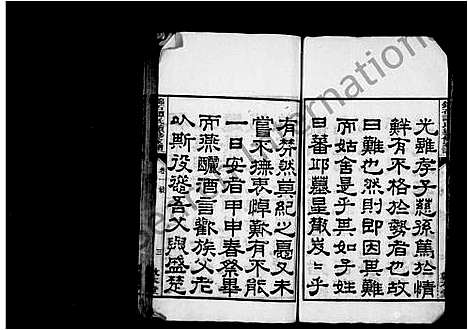 光雖孝子慈孫篤於情
鮮有不格於勢者也故
曰難也然則即因其難
而姑舍是乎其如子姓
日蕃邱墓星散炭炭乎
有茫然莫紀之憂又未
嘗不撫衷悼難有不能
一日安者甲申春祭畢
而燕釃酒言歡族父老
以斯役發吾父與盛楚
卷一
三